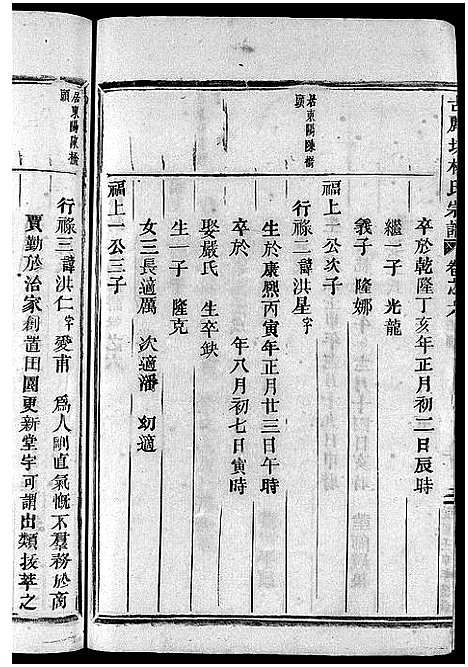 氏宗譜 卷之六
卒於乾隆丁亥年正月初二日辰時
繼一子 光龍
義子 隆娜
福上一公次子
居東陽陳樹頭
行祿二諱洪星字
生於康熙丙寅年正月廿三日午時
卒於 年八月初七日寅時
娶嚴氏 生卒缺
生一子 隆克
女三長適厲 次適潘 幼適
福上一公三子
居東陽陳樹頭
行祿三諱洪仁字愛甫 為人剛直氣慨不羣務於商
賈勤於治家創置田園更新堂宇可謂出類拔萃之